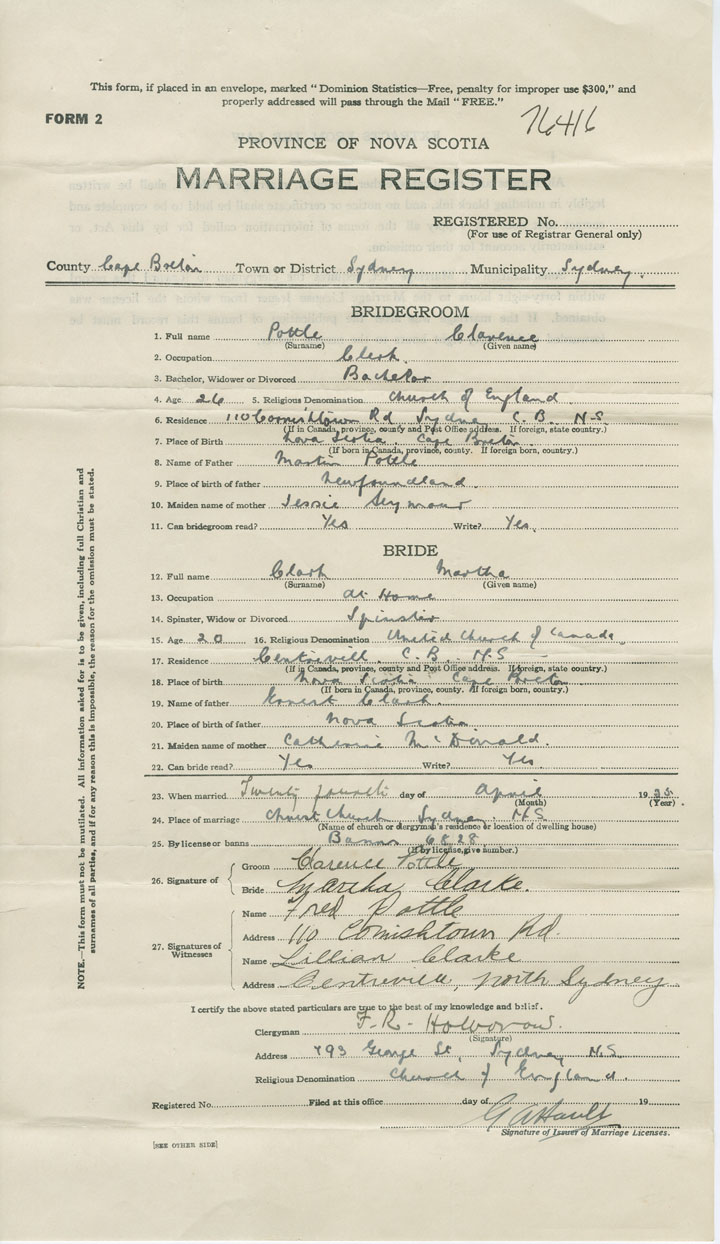 This form, if placed in an envelope, marked "Dominion Statistics—Free, penalty for improper use $300," and
properly addressed will pass through the Mail "FREE."
FORM 2
76416
PROVINCE OF NOVA SCOTIA
MARRIAGE REGISTER
REGISTERED No.
(For use of Registrar General only)
County Cape Breton Town or District Sydney Municipality Sydney.
BRIDEGROOM
1. Full name Pottle Clarence
(Surname) (Given name)
2. Occupation Clerk.
3. Bachelor, Widower or Divorced Bachelor
4. Age 26 5. Religious Denomination Church of England
6. Residence 110 Cornishtown Rd Sydney C.B. N.S.
(If in Canada, province, county and Post Office address. If foreign, state country.)
7. Place of Birth Nova Scotia. Cape Breton.
(If born in Canada, province, county. If foreign born, country.)
8. Name of Father Martin Pottle
9. Place of birth of father Newfoundland.
10. Maiden name of mother Jessie Seymour
11. Can bridegroom read? Yes Write? Yes.
BRIDE
12. Full name Clark Martha
(Surname) (Given name)
13. Occupation at Home
14. Spinster, Widow or Divorced Spinster
15. Age 20 16. Religious Denomination United Church of Canada
17. Residence Centrevill. C.B. N.S
(If in Canada, province, county and Post Office address. If foreign, state country.)
18. Place of birth Nova Scotia Cape Breton
(If born in Canada, province, county. If foreign born, country.)
19. Name of father Ernest Clark
20. Place of birth of father Nova Scotia
21. Maiden name of mother Catherine McDonald.
22. Can bride read? Yes Write? Yes
23. When married Twenty fourth day of April 1935.
(Month) (Year)
24. Place of marriage Christ Church Sydney. N.S
(Name of church or clergyman's residence or location of dwelling house)
25. By license or banns Banns 6828
(If by license, give number.)
26. Signature of
Groom Clarence Pottle
Bride Martha Clarke.
27. Signatures of Witnesses
Name Fred Pottle
Address 110 Cornishtown Rd.
Name Lillian Clarke
Address Centreville, North Sydney
I certify the above stated particulars are true to the best of my knowledge and belief.
Clergyman F. R.
(Signature)
Address 793 George St, Sydney N.S.
Religious Denomination Church of England.
Registered No. Filed at this office day of 19
Signature of Issuer of Marriage Licenses.
[SEE OTHER SIDE]
NOTE.—This form must not be mutilated. All information asked for is to be given, including full Christian and
surnames of all parties, and if for any reason this is impossible, the reason for the omission must be stated.